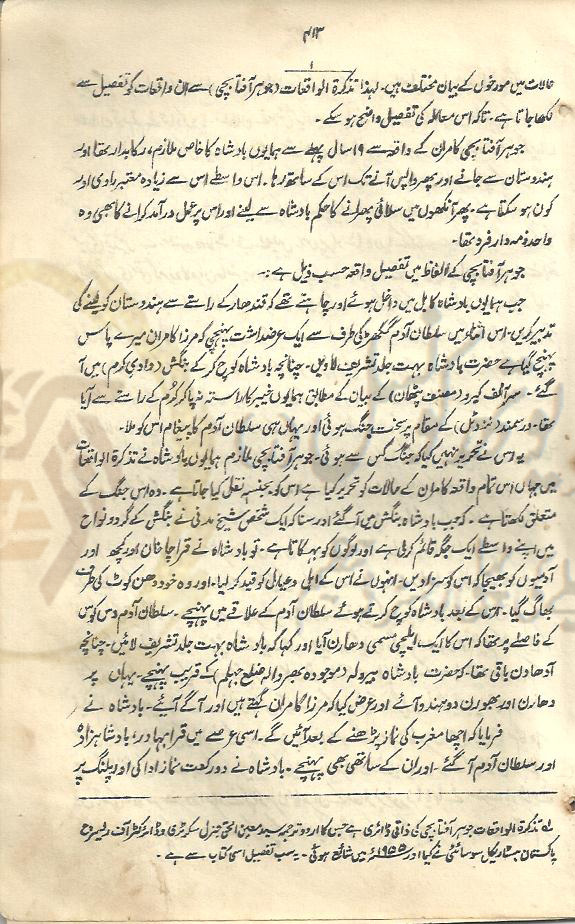 ۴۱۳
حالات میں مورخوں کے بیان مختلف ہیں۔ لہذا تذکرۃ الواقعات (جوہر آفتابچی) سے ان واقعات کو تفصیل سے
لکھا جاتا ہے۔ تاکہ اس معاملہ کی تفصیل واضح ہو سکے۔
جوہر آفتابچی کامران کے واقعہ سے ۱۹ سال پہلے سے ہمایوں بادشاہ کا خاص ملازم، رکابدار تھا اور
ہندوستان سے جانے اور پھر واپس آنے تک اس کے ساتھ رہا۔ اس واسطے اس سے زیادہ معتبر راوی اور
کون ہو سکتا ہے۔ پھر آنکھوں میں سلائی پھرانے کا حکم بادشاہ سے لینے اور اس پر عمل درآمد کرانے کا بھی وہ
واحد ذمہ دار فرد تھا۔
جوہر آفتابچی کے الفاظ میں تفصیل واقعہ حسب ذیل ہے:۔
جب ہمایوں بادشاہ کابل میں داخل ہوئے اور چاہتے تھے کہ قندھار کے راستے سے ہندوستان کو لینے کی
تدبیر کریں۔ اس اثناء میں سلطان آدم گکھڑ کی طرف سے ایک عرضداشت پہنچی کہ مرزا کامران میرے پاس
پہنچ گیا ہے حضرت بادشاہ بہت جلد تشریف لاویں۔ چنانچہ بادشاہ کوچ کر کے بنگش (وادی کرم) میں آ
گئے۔ سر آلف کیرو (مصنف پٹھان) کے بیان کے مطابق ہمایوں خیبر کا راستہ نہ پا کر کُرم کے راستے سے آیا
تھا۔ درسمند (نزد ٹل) کے مقام پر سخت جنگ ہوئی اور یہاں ہی سلطان آدم کا پیغام اس کو ملا۔
یہ اس نے تحریر نہیں کیا کہ جنگ کس سے ہوئی۔ جوہر آفتابچی ملازم ہمایوں بادشاہ نے تذکرۃ الواقعات
میں جہاں اس تمام واقعہ کامران کے حالات کو تحریر کیا ہے اس کو بجنسہ نقل کیا جاتا ہے۔ وہ اس جنگ کے
متعلق لکھتا ہے۔ کہ جب بادشاہ بنگش میں آ گئے اور سنا کہ ایک شخص شیخ مدنی نے بنگش کے گرد و نواح
میں اپنے واسطے ایک جگہ قائم کر لی ہے اور لوگوں کو بہکاتا ہے۔ تو بادشاہ نے قراچا خان اور کچھ اور
آدمیوں کو بھیجا کہ اس کو سزا دیں۔ انہوں نے اس کے اہل و عیال کو قید کر لیا۔ اور وہ خود دھن کوٹ کی طرف
بھاگ گیا۔ اس کے بعد بادشاہ کوچ کرتے ہوئے سلطان آدم کے علاقے میں پہنچے۔ سلطان آدم دس کوس
کے فاصلے پر تھا کہ اس کا ایک ایلچی مسمی دھارن آیا اور کہا کہ بادشاہ بہت جلد تشریف لائیں۔ چنانچہ
آدھا دن باقی تھا کہ حضرت بادشاہ (موجودہ ضلع جہلم) کے قریب پہنچے۔ یہاں پر
دھارن اور بھورن دو ہندو آئے اور عرض کیا کہ مرزا کامران کہتے ہیں اور آگے آئیے۔ بادشاہ نے
فرمایا کہ اچھا مغرب کی نماز پڑھنے کے بعد آئیں گے۔ اسی عرصے میں قرا بہادر، بادشاہزادہ
اور سلطان آدم آ گئے۔ اور ان کے ساتھی بھی پہنچے۔ بادشاہ نے دو رکعت نماز ادا کی اور پلنگ پر
لہ تذکرۃ الواقعات جوہر آفتابچی کی ذاتی ڈائری ہے جس کا اردو ترجمہ سید معین الحق جنرل سکرٹری و ڈائرکٹر آف ریسرچ
پاکستان ہسٹاریکل سوسائٹی نے کیا اور ۱۹۵۵ء میں شائع ہوئی۔ یہ سب تفصیل اسی کتاب سے ہے۔